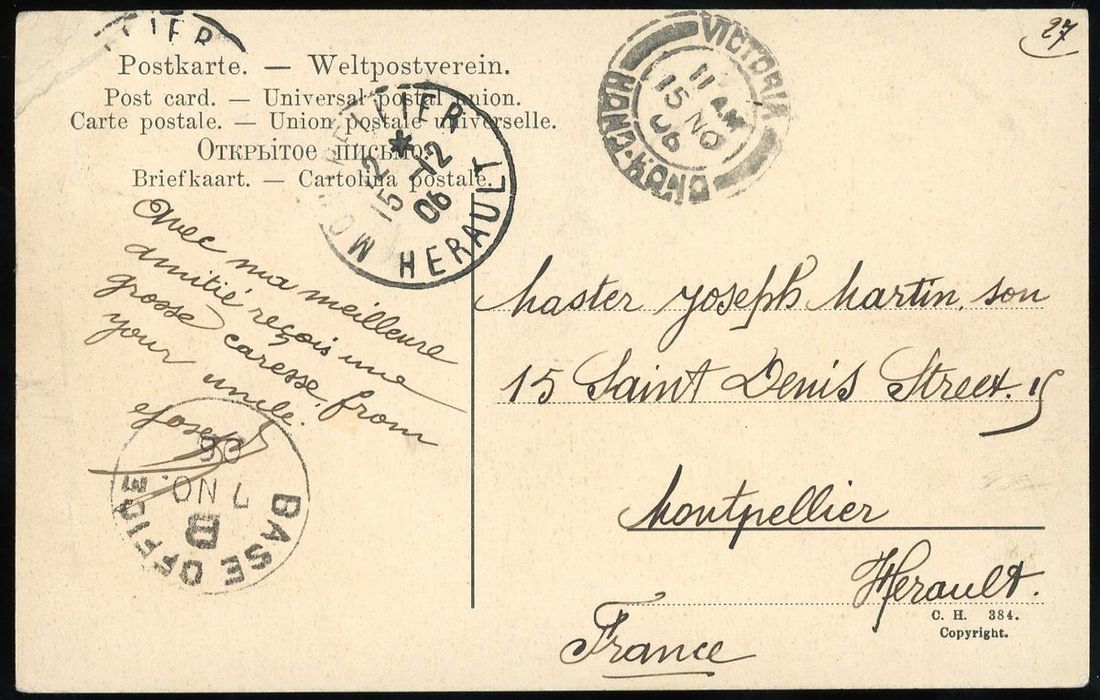 LLIER
27
Postkarte. — Weltpostverein.
Post card. — Universal postal union.
Carte postale. — Union postale universelle.
Открытое письмо.
Briefkaart. — Cartolina postale.
VICTORIA
HONG-KONG
11 AM
15 NO
06
MONTPELLIER
HERAULT
*
15 12
12
06
Avec ma meilleure
amitié reçois une
grosse caresse from
your uncle.
Joseph
BASE OFFICE
B
7 NO.
06
Master Joseph Martin, son
15 Saint Denis Street. 15
Montpellier
Herault.
France
C. H. 384.
Copyright.